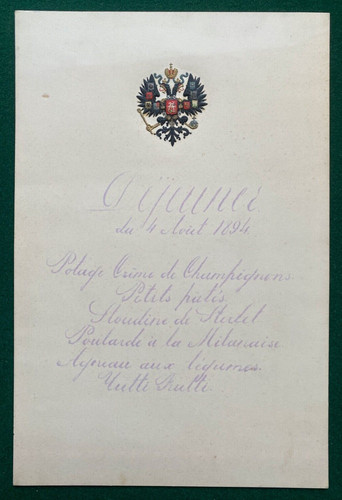 Déjeuner
du 4 Août 1894.
Potage Crème de Champignons.
Petits patés
de Sterlet
Poularde à la Milanaise
Agneau aux légumes.
Tutti Frutti.